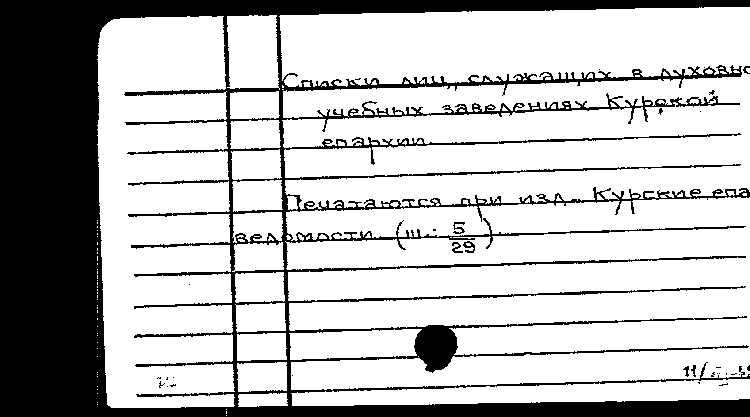 Списки лиц, служащих в духовно
учебных заведениях Курской
епархии.
Печатаются при изд. Курские епа
ведомости (ш.: 5/29)
11/